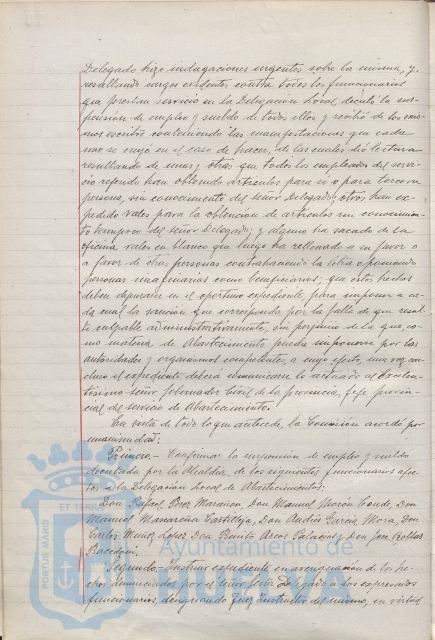 Delegado hizo indagaciones urgentes sobre la misma, y,
resultando cargos evidentes contra todos los funcionarios
que prestan servicio en la Delegación Local, decretó la sus-
pensión de empleo y sueldo de todos ellos y recibió de los mis-
mos escritos conteniendo las manifestaciones que cada
uno se creyó en el caso de hacer, de las cuales dio lectura
resultando de unas y otras que todos los empleados del servi-
cio referido han obtenido artículos para sí o para tercera
persona, sin conocimiento del señor Delegado; otros han ex-
pedido vales para la obtención de artículos sin conocimien-
to tampoco del señor Delegado; y alguno ha sacado de la
oficina vales en blanco que luego ha rellenado a su favor o
a favor de otras personas contrahaciendo la letra o poniendo
personas imaginarias como beneficiarios; que estos hechos
deben depurarse en el oportuno expediente, para imponer a ca-
da cual la sanción que corresponda por la falta de que resul-
te culpable administrativamente, sin perjuicio de la que, co-
mo materia de Abastecimiento pueda imponerse por las
autoridades y organismos competentes a cuyo efecto, una vez con-
cluso el expediente deberá comunicarse lo actuado al Excelen-
tísimo señor Gobernador Civil de la provincia, Jefe provin-
cial del servicio de Abastecimiento.
En vista de todo lo que antecede, la Comisión acordó por
unanimidad:
Primero.- Confirmar la suspensión de empleo y sueldo
decretada por la Alcaldía, de los siguientes funcionarios afec-
tos a la Delegación Local de Abastecimientos:
Don Rafael Perez Marañon, Don Manuel Morón Conde, Don
Manuel Castilleja, Don Andrés García Mora, Don
Carlos Muñoz López, Don Benito Arcos Palacios y Don José

Segundo.- Instruir expediente en averiguación de los he-
chos denunciados por el señor Delegado a los expresados
funcionarios, designando Juez instructor del mismo, en virtud
PORTUS MARIS
ET TERR
Ayuntamiento de